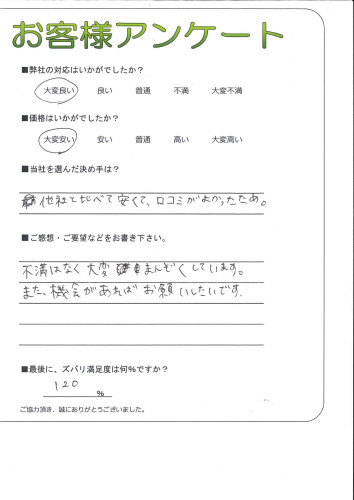 お客様アンケート
■弊社の対応はいかがでしたか?
大変良い 良い 普通 不満 大変不満
■価格はいかがでしたか?
大変安い 安い 普通 高い 大変高い
■当社を選んだ決め手は?
他社と比べて安くて、口コミがよかったため。
■ご感想・ご要望などをお書き下さい。
不満はなく大変まんぞくしています。
また、機会があればお願いしたいです。
■最後に、ズバリ満足度は何%ですか?
120
%
ご協力頂き、誠にありがとうございました。